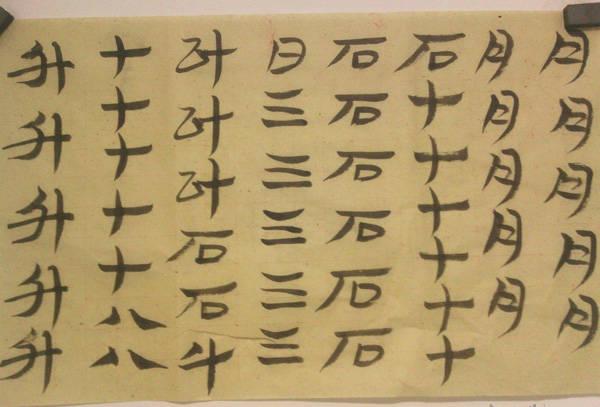 月月月月月
月月月月月
石十十十十十十
石石石石石石
日三三三三三
计计计石石斗
十十十十十八八
升升升升升